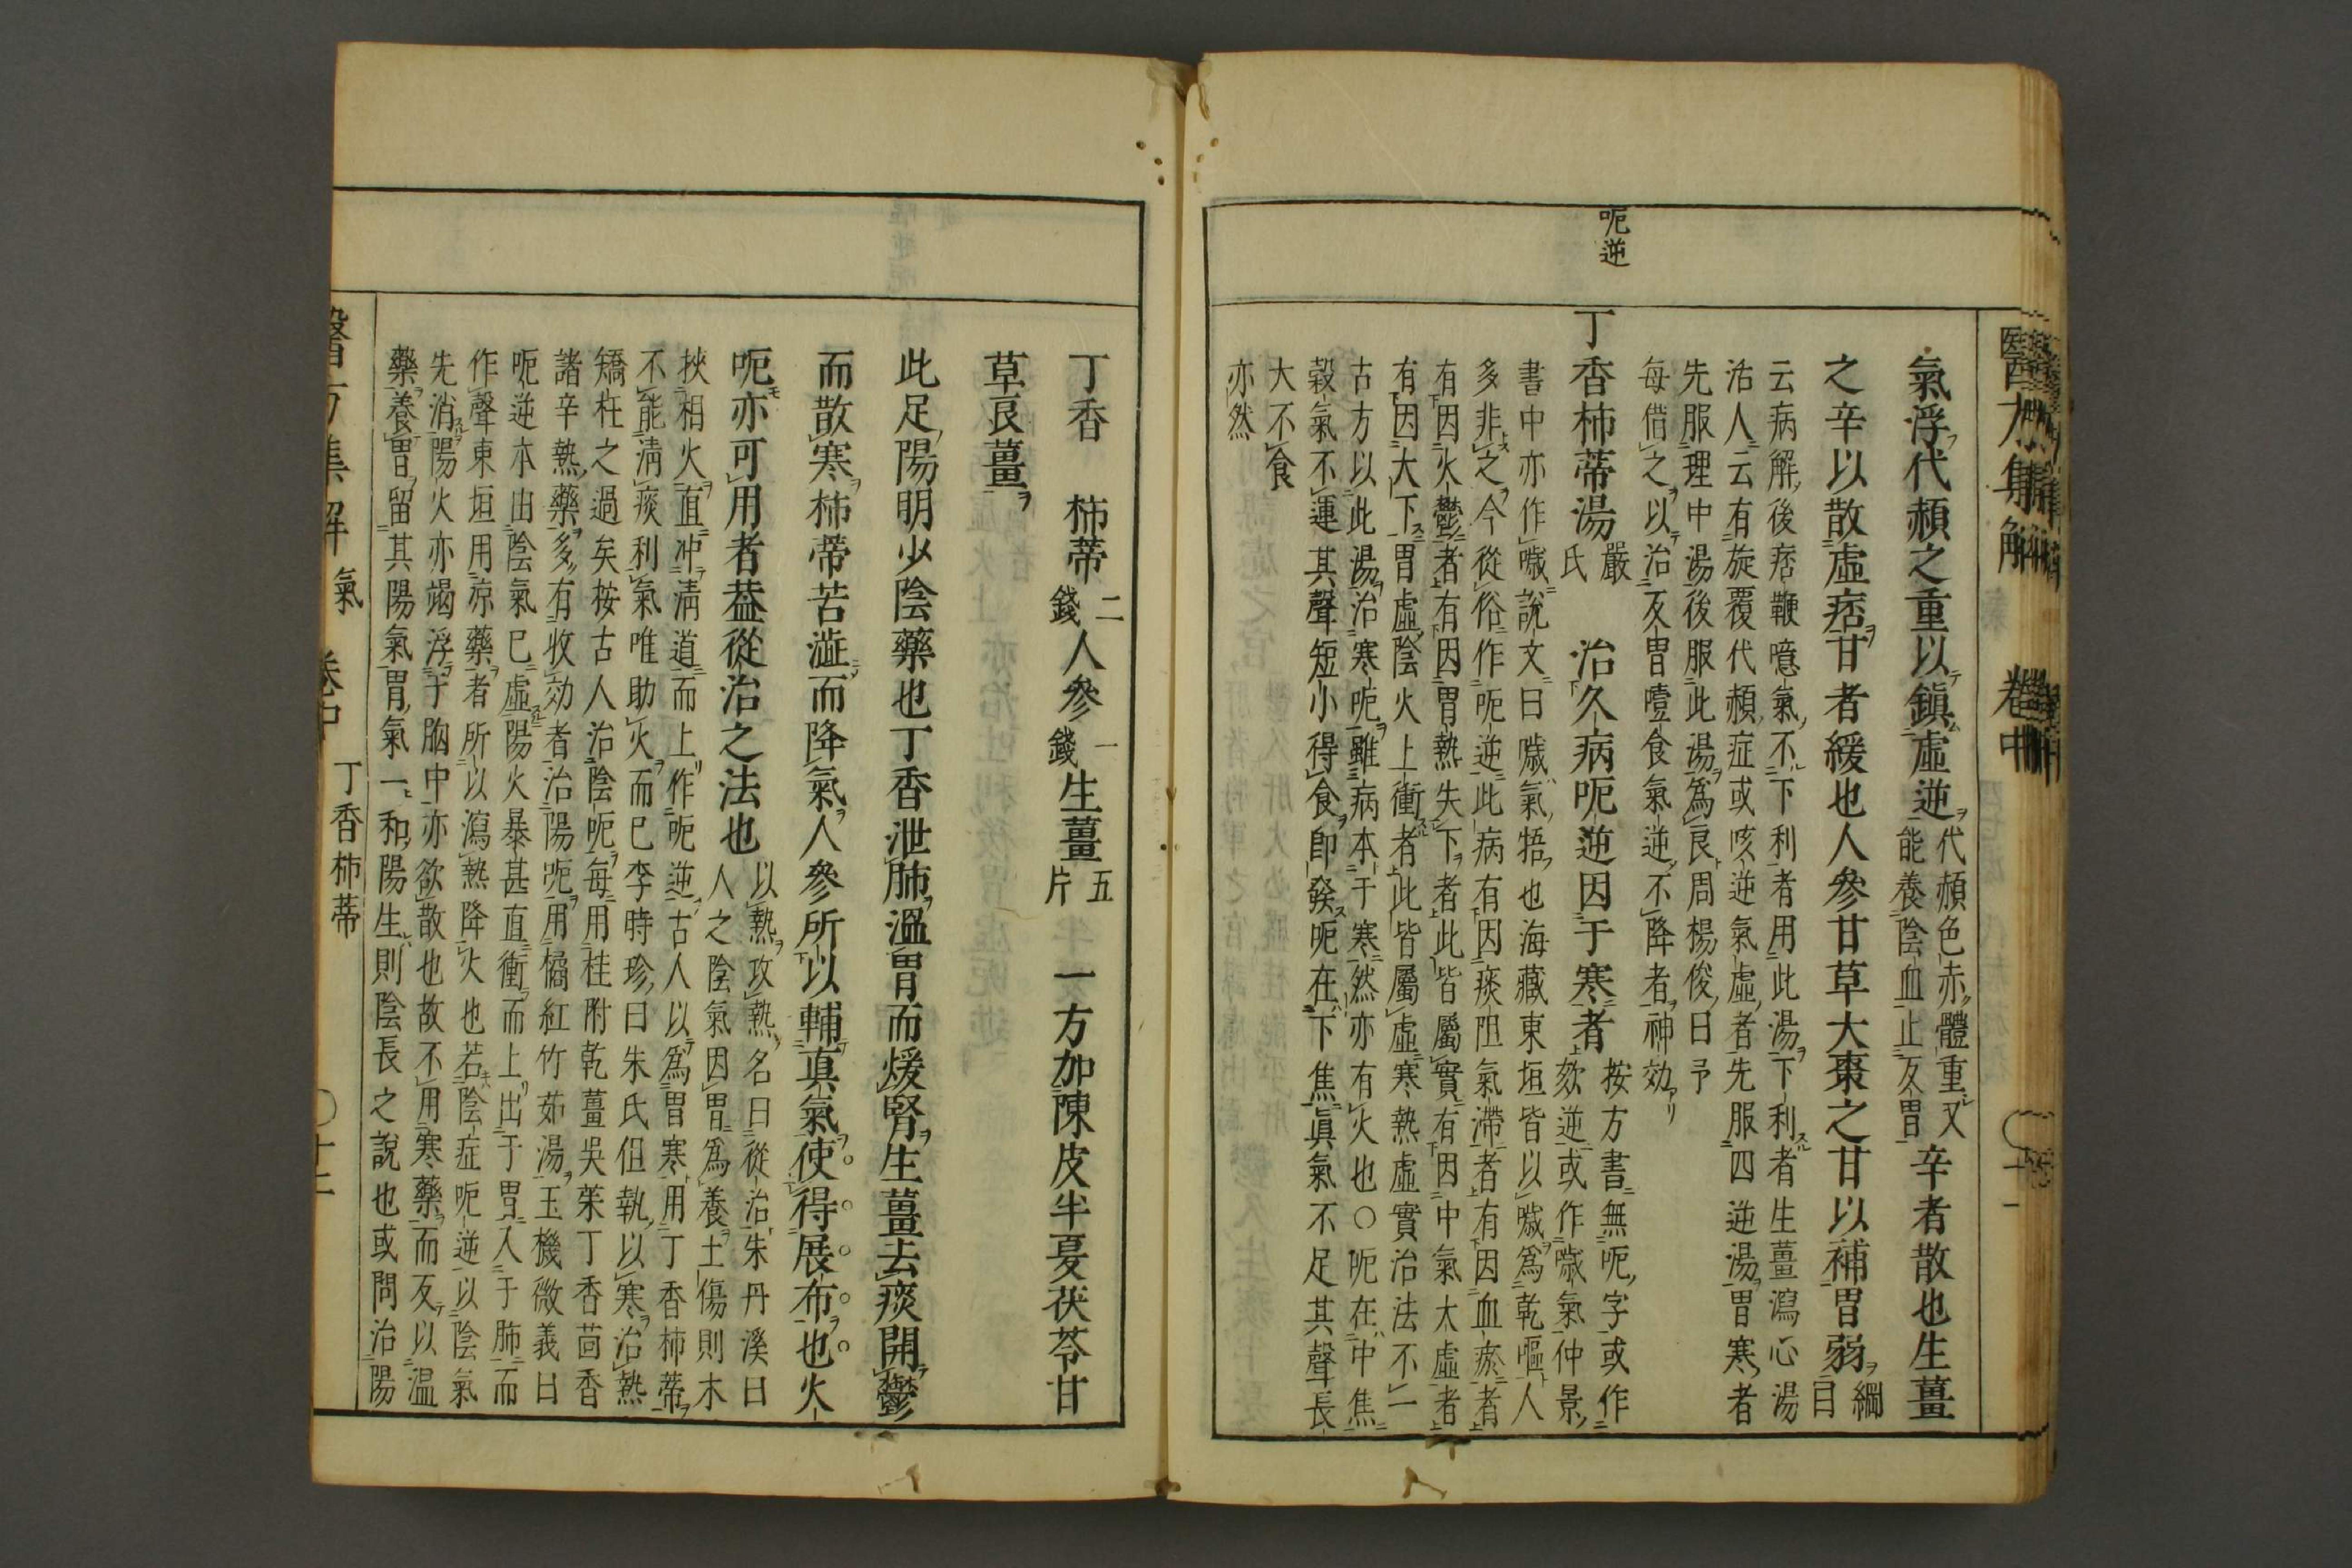 醫方集解　卷中　十一
呃逆
氣浮代赭之重以鎮虛逆代赭色赤體重又能養陰血止反胃辛者散也生薑
之辛以散虛痞甘者緩也人參甘草大棗之甘以補胃弱綱目
云病解後痞鞕噫氣不下利者用此湯下利者生薑瀉心湯
活人云有旋覆代赭症或咳逆氣虛者先服四逆湯胃寒者
先服理中湯後服此湯爲良周楊俊曰予
每借之以治反胃噎食氣逆不降者神効
丁香柿蒂湯嚴氏　治久病呃逆因于寒者按方書無呃字或作欬逆或作噦氣仲景
書中亦作噦說文曰噦氣牾也海藏東垣皆以噦爲乾嘔人
多非之今從俗作呃逆此病有因痰阻氣滯者有因血瘀者
有因火鬱者有因胃熱失下者此皆屬實有因中氣大虛者
有因大下胃虛陰火上衝者此皆屬虛寒熱虛實治法不一
古方以此湯治寒呃雖病本于寒然亦有火也○呃在中焦
穀氣不運其聲短小得食即發呃在下焦眞氣不足其聲長
大不食
亦然
丁香　柿蒂二錢人參一錢生薑五片　一方加陳皮半夏茯苓甘
草良薑
此足陽明少陰藥也丁香泄肺溫胃而煖腎生薑去痰開鬱
而散寒柿蒂苦澁而降氣人參所以輔真氣使得展布也火
呃亦可用者葢從治之法也以熱攻熱名曰從治朱丹溪曰人之陰氣因胃爲養土傷則木
挾相火直冲清道而上作呃逆古人以爲胃寒用丁香柿蒂
不能清痰利氣唯助火而已李時珍曰朱氏但執以寒治熱
矯枉之過矣按古人治陰呃每用桂附乾薑吳茱丁香茴香
諸辛熱藥多有收効者治陽呃用橘紅竹茹湯玉機微義曰
呃逆本由陰氣已虛陽火暴甚直衝而上出于胃入于肺而
作聲東垣用凉藥者所以瀉熱降火也若陰症呃逆以陰氣
先消陽火亦竭浮于胸中亦欲散也故不用寒藥而反以温
藥養胃留其陽氣胃氣一和陽生則陰長之說也或問治陽
醫方集解　氣　卷中　丁香柿蒂　十二